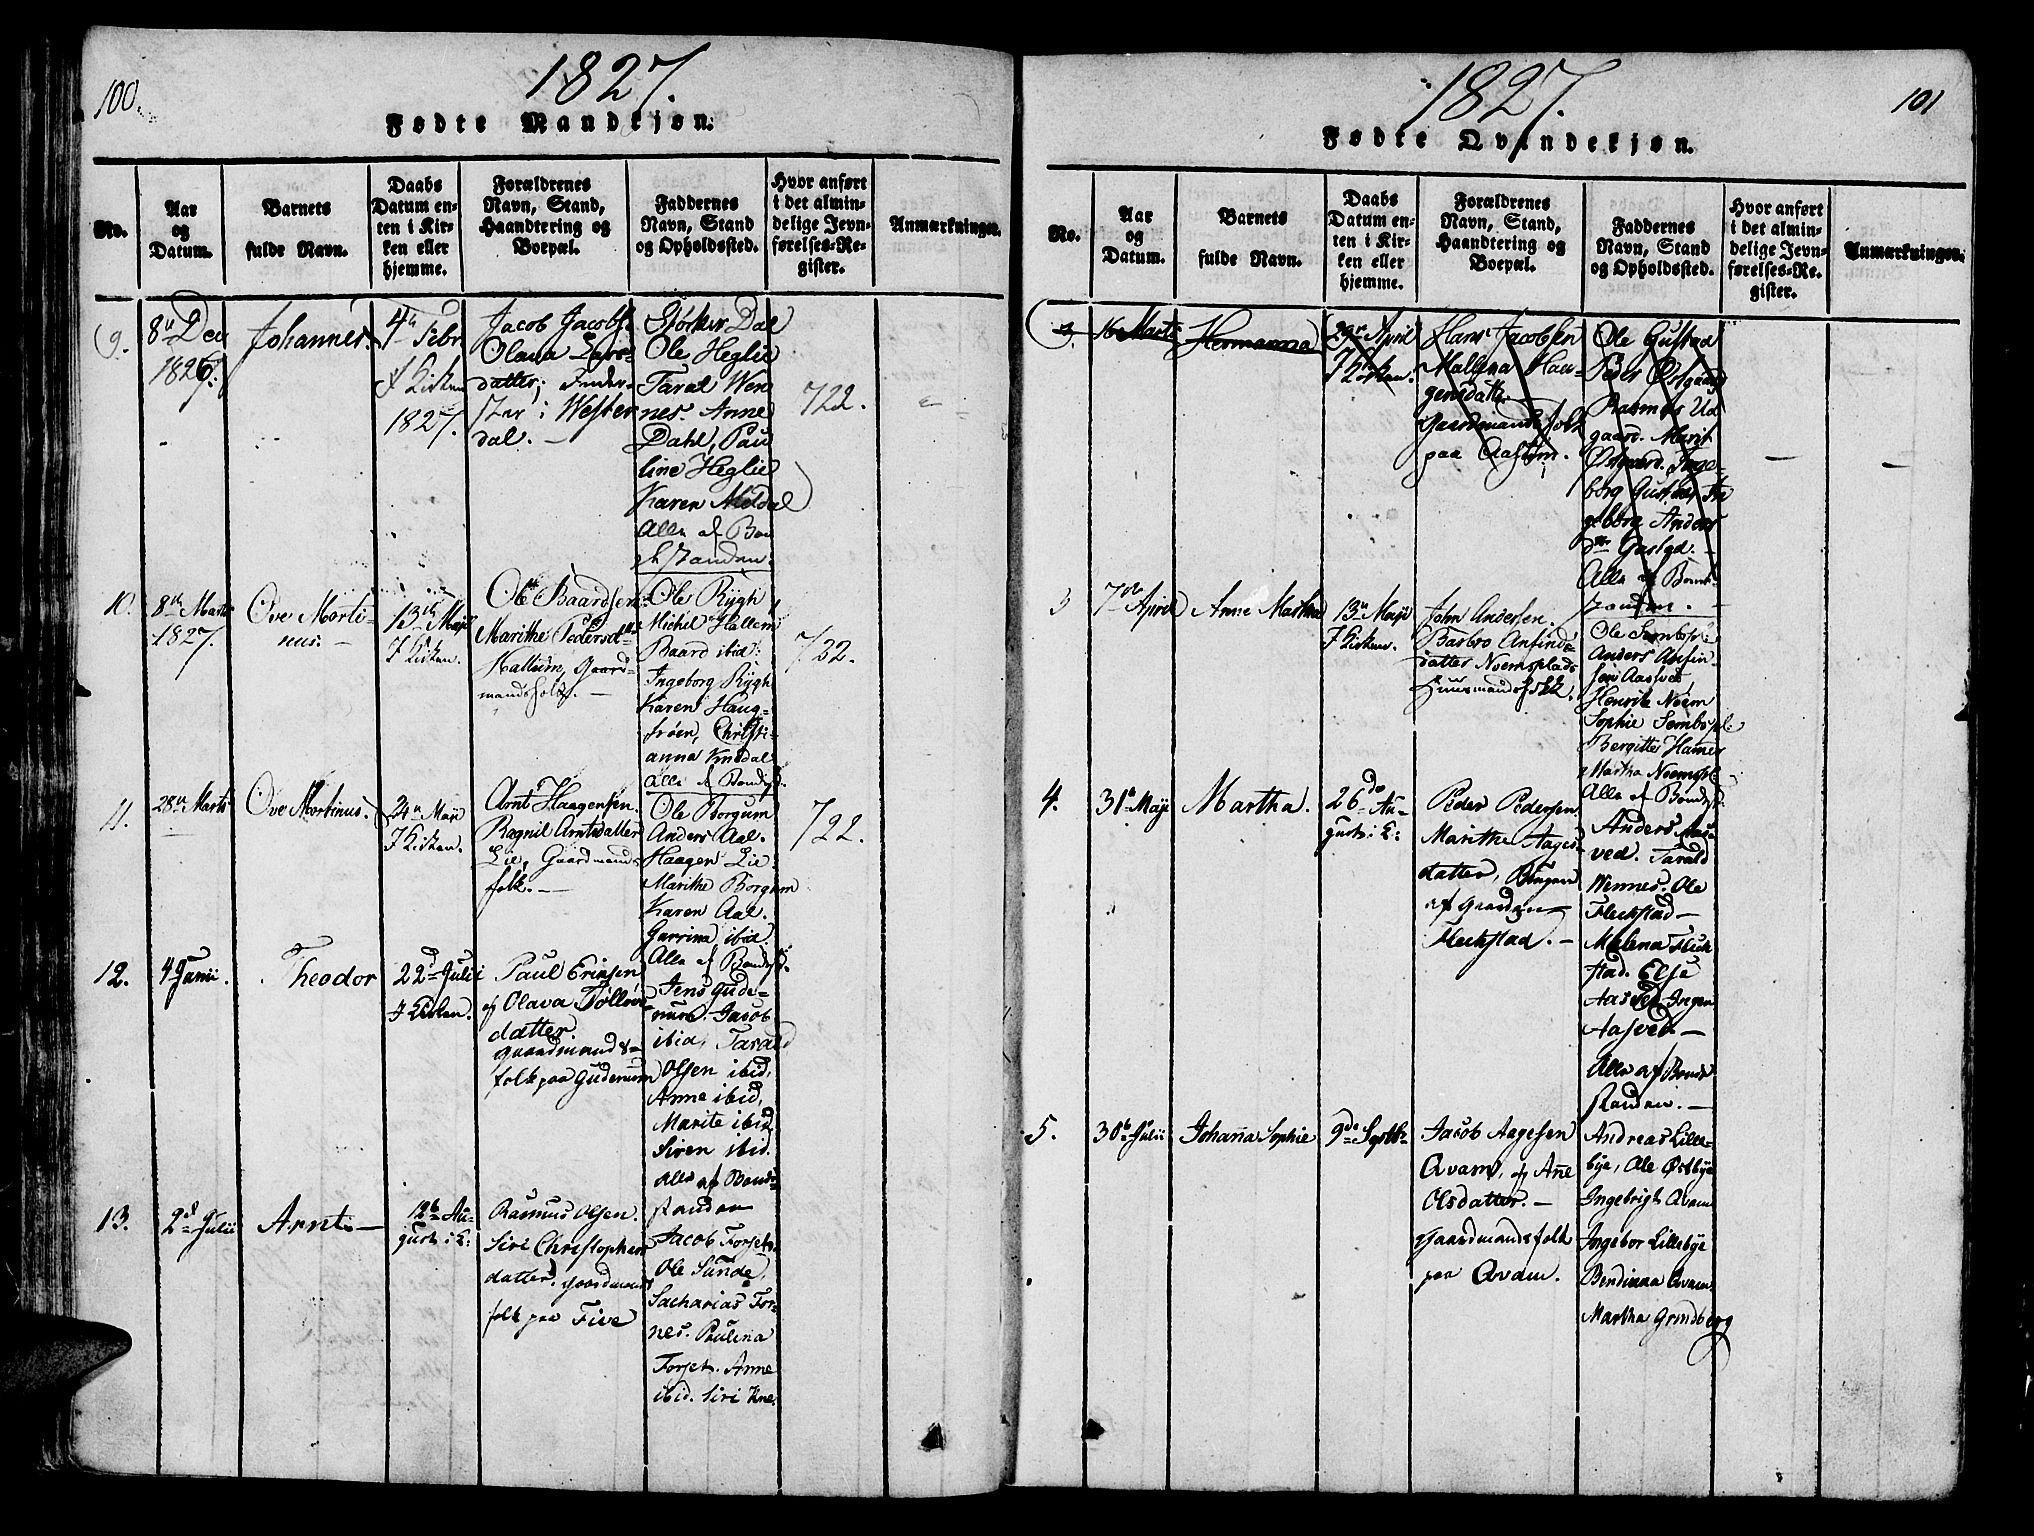 100.
1827.
Fødte Mandkjøn.
No.
Aar
og
Datum.
Barnets
fulde Navn.
Daabs
Datum en-
ten i Kir-
ken eller
hjemme.
Forældrenes
Navn, Stand,
Haandtering og
Boepæl.
Faddernes
Navn, Stand
og Opholdssted.
Hvor anført
i det almin-
delige Jevn-
førelses-Re-
gister.
Anmærkninger.
9.
8de Dec
1826.
Johannes.
4de Febr
Kirken
1827.
Jacob Jacobs.
Olava Lars-
datter;
i Wester
dal.
Dal
Ole Heglie
Taral Wen
nes. Anne
Dahl, Pau
line Heglie
Karen Meldal
Alle af Bon
destanden.
722.
10.
8de Marts
1827.
Ove Morti-
nus.
13de Maji
I Kirken.
Ole Baardsen
Marithe Pedersdtr
Hallum, Gaard-
mandsfolk.
Ole Rygh
Michil Hallem
Baard ibid:
Ingeborg Rygh
Karen Haug-
frøen, Christi-
anna
Alle af Bondest.
732.
11.
28de Marts
Ove Mortinus.
24de Maji
I Kirken.
Arnt Haagensen
Ragnil Arntsdatter
Lie, Gaardmands
folk.
Ole Borgum
Anders Aal.
Haagen Lie.
Marithe Borgum
Karen Aal.
ibid.
Alle af Bondest.
722.
12.
4 Junii.
Theodor
22d Julii
I Kirken.
Paul Ericsen
og Olava Tølløvs-
datter
gaardmands-
folk paa Gudenum
Jens Gude-
num. Jacob
ibid, Tarald
Olsen ibid,
Anne ibid,
Marite ibid
Siren ibid.
alle af Bonde-
standen
13.
2d Julii
Arnt
12te Au-
gust i K:
Rasmus Olsen.
Siri Christophers
datter. gaardmands
folk paa Five
Jacob Forset.
Ole Sunde,
Sacharias For-
nes. Paulina
Forset. Anne
ibid. Siri Kne.
101
1827.
Fødte Qvindekjøn.
No.
Aar
og
Datum.
Barnets
fulde Navn.
Daabs
Datum en-
ten i Kir-
ken eller
hjemme.
Forældrenes
Navn, Stand,
Haandtering og
Boepæl.
Faddernes
Navn, Stand
og Opholdssted.
Hvor anført
i det almin-
delige Jevn-
førelses-Re-
gister.
Anmærkninger.
3.
16 Marts
Hermanna
29de April
I Kirken.
Hans Jacobsen
Mallena Hau-
gensdatt.
Gaardmandsfolk
paa
Ole Gustad
Peder Østgaard
Rasmus Ud
gaard. Marit
Østgaard. Inge-
borg Gustad In
geborg Anders
dtr Gustad.
Alle af Bonde-
standen.
3
7de April
Anne Martha
13de Maji
I Kirken.
John Andersen.
Barbro Anfinds-
datter Noemsplads
Huusmandsfolk.
Ole
Anders Anfin-
sen Aasved,
Henrik Noem
Sophie
Bergitte Hamer
Martha Noemspl.
Alle af Bondest.
4.
31te Maji
Martha.
26de Au-
gust i K:
Peder Pedersen
Marithe Aages-
datter,
af Gaarden
Fleckstad.
Anders Aas-
ved. Tarald
Wennes. Ole
Fleckstad
Malena Fleck
stad. Else
Aasved Inger
Aasved
Alle af Bonde
standen.
5.
30te Julii
Johanna Sophie
9de Septbr
Jacob Aagesen
Qvam, og Ane
Olsdatter.
gaardmandsfolk
paa Qvam.
Andreas Lille-
bye, Ole Østbye
Ingebrigt Qvam
Ingebor Lillebye
Berdinna Qvam
Martha Grindberg